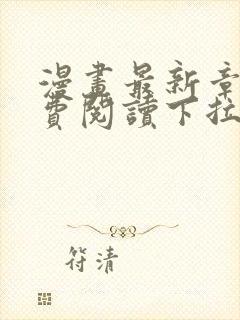 漫畫最新章
費閱讀下拉
符清